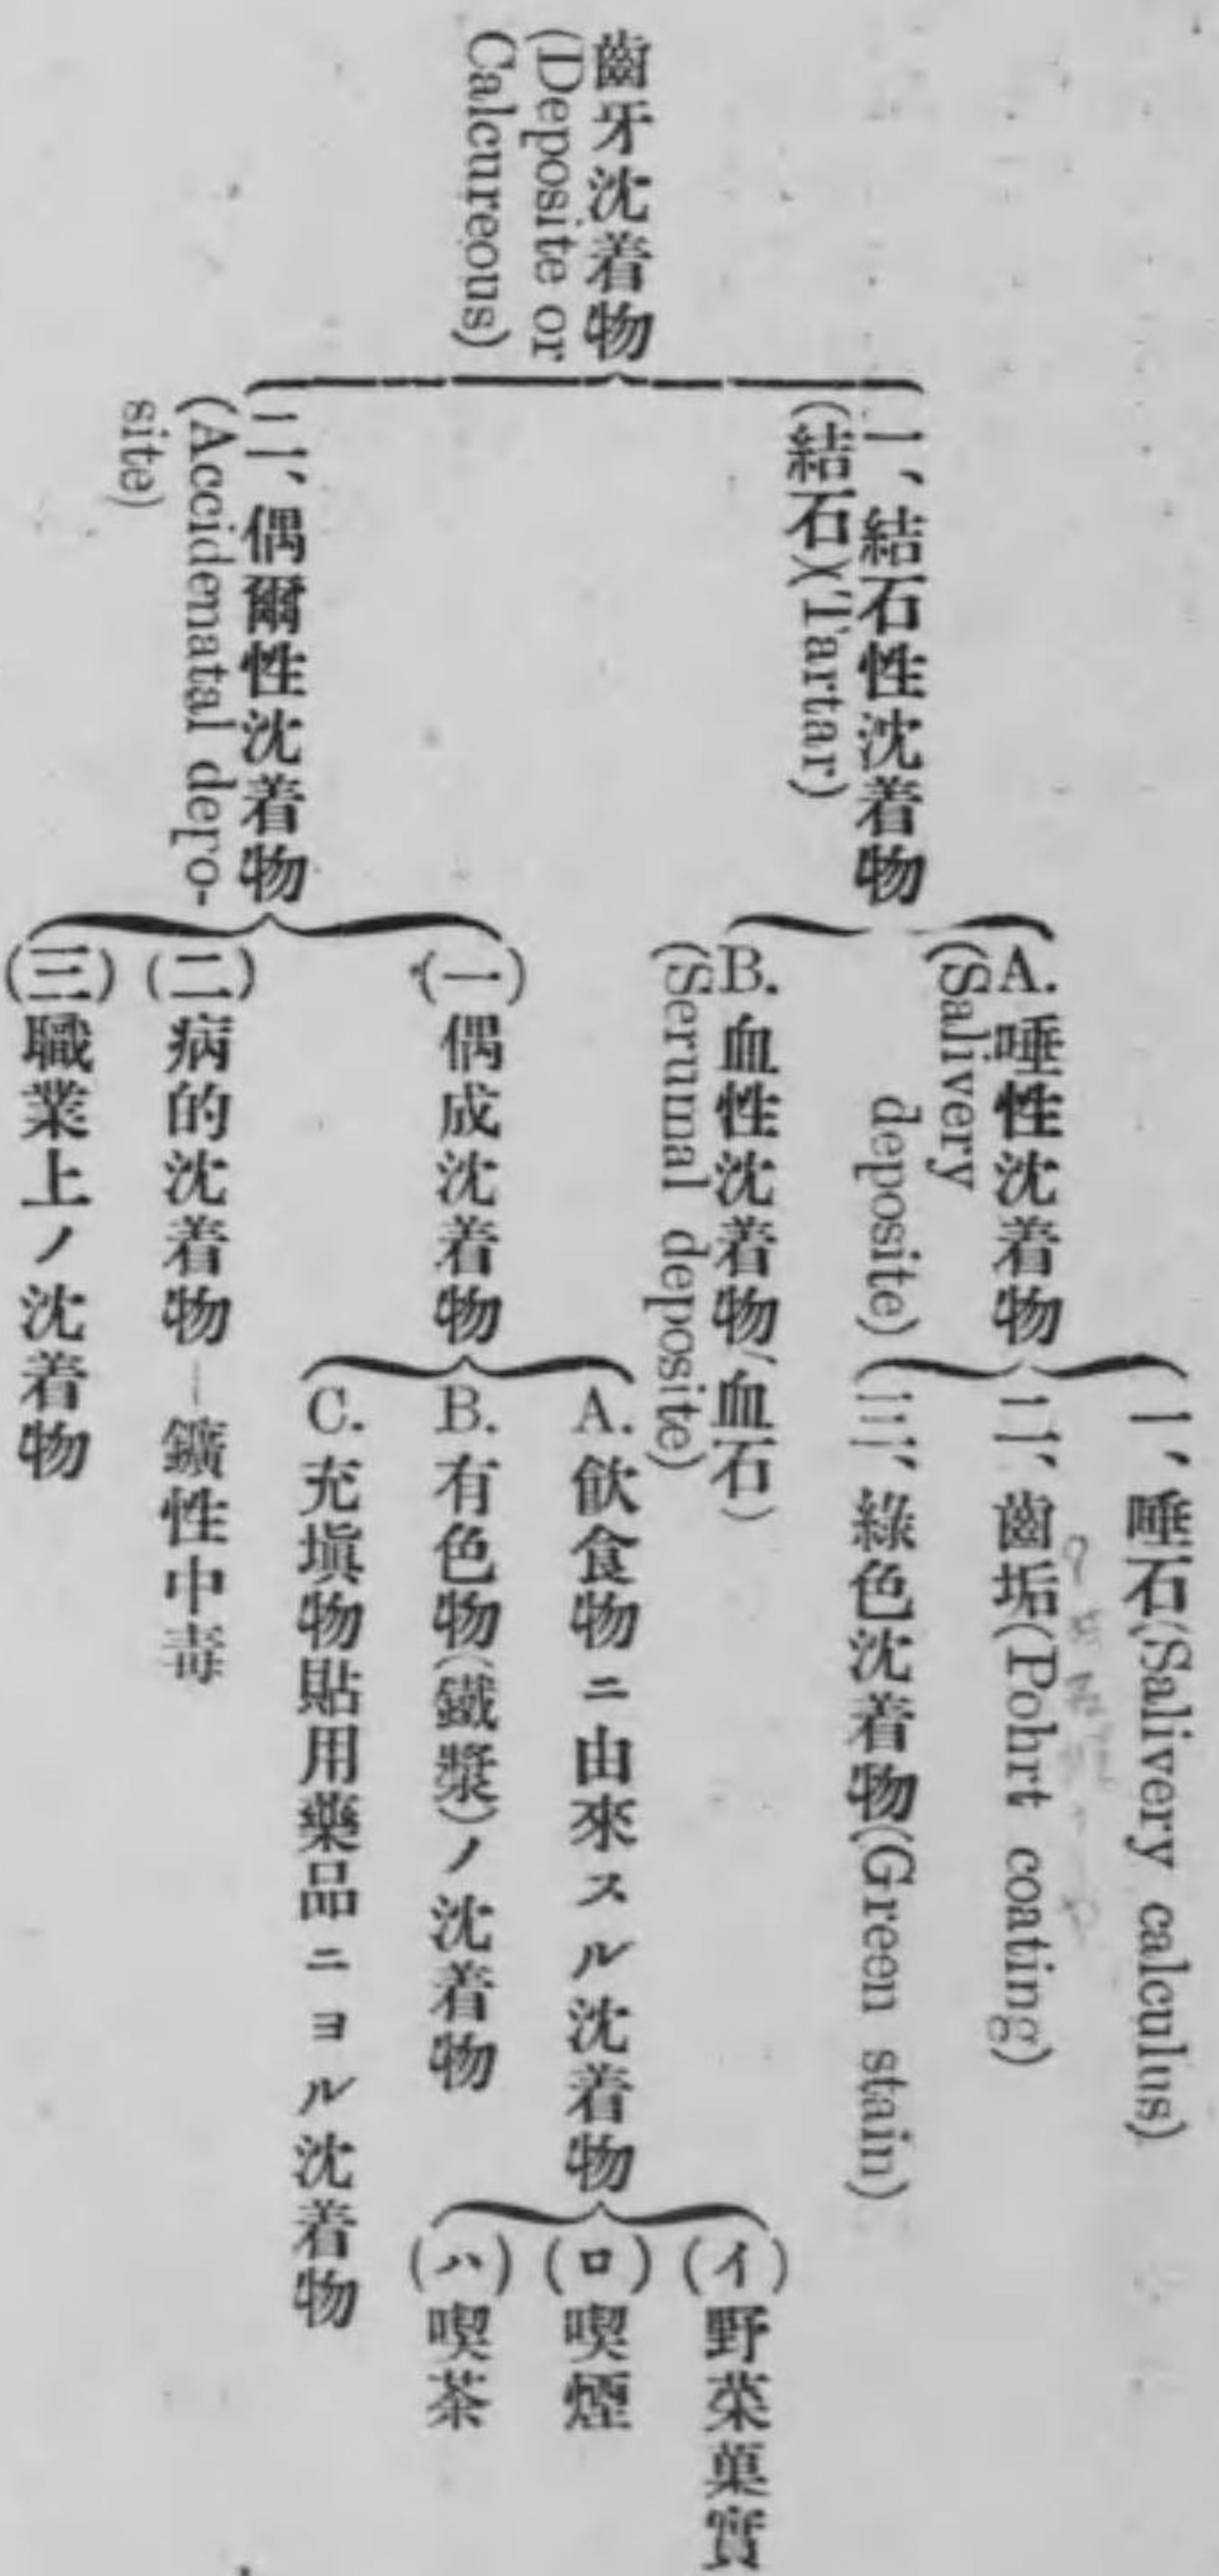 齒牙沈着物
(Deposite or
Calcureous)
一、結石性沈着物
(結石)(Tartar)
A. 唾性沈着物
(Salivery
deposite)
一、唾石(Salivery calculus)
二、齒垢(Pohrt coating)
三、綠色沈着物(Green stain)
B. 血性沈着物(血石)
(Serumal deposite)
二、偶爾性沈着物
(Accidenatal depo-
site)
(一)偶成沈着物
A. 飮食物ニ由來スル沈着物
(イ)野菜菓實
(ロ)喫煙
(ハ)喫茶
B. 有色物(鐵漿)ノ沈着物
C. 充塡物貼用藥品ニヨル沈着物
(二)病的沈着物—鑛性中毒
(三)職業上ノ沈着物